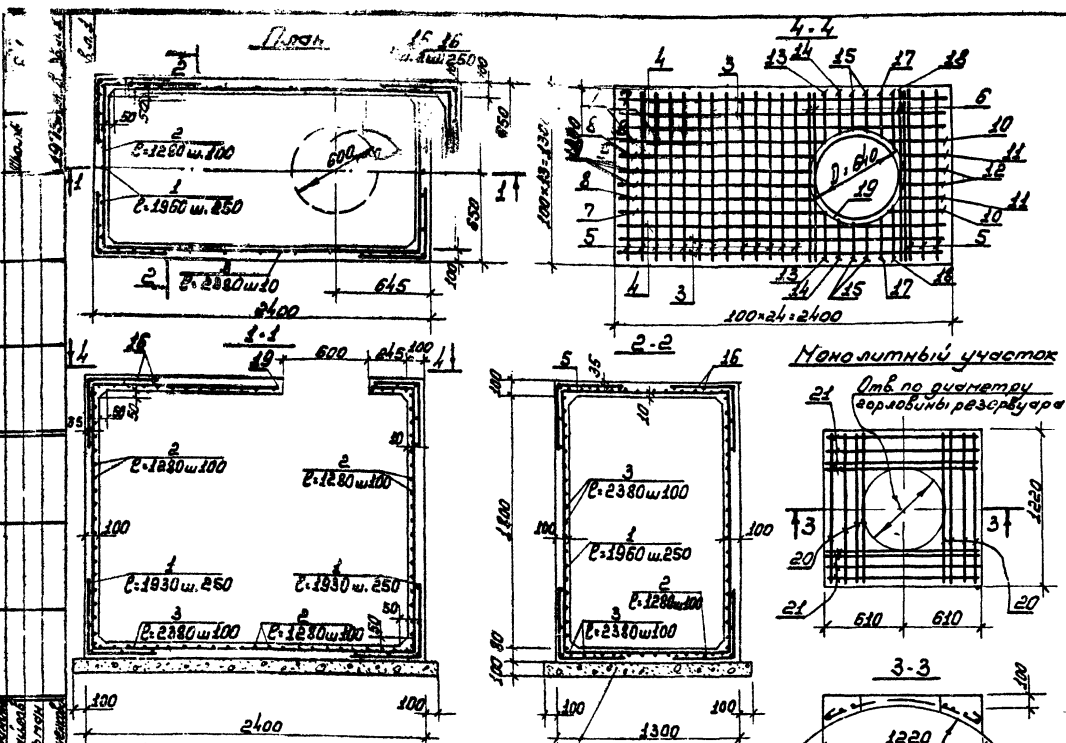 План
16
ш.250
2
50
50
100
2
ℓ=1260 ш.100
1
ℓ=1960 ш.250
600
650
650
1
1
2
ℓ=2380 ш10
645
100
2400
4-4
4
3
13
14
15
17
18
6
10
11
12
11
10
8
7
5
5
D=640
19
4
3
13
14
15
17
18
100×24=2400
1-1
4
16
19
600
245
100
4
50
50
35
2
ℓ=1280ш100
2
ℓ=1280ш100
100
1
ℓ=1930ш.250
1
ℓ=1930ш.250
3
ℓ=2380ш100
2
ℓ=1280ш100
50
50
100
100
2400
2-2
5
35
16
100
10
3
ℓ=2380ш100
1800
100
100
1
ℓ=1960ш.250
2
ℓ=1280ш100
3
ℓ=2380ш100
80
100
100
100
1300
Монолитный участок
Отв. по диаметру
горловины резервуара
21
3
3
1220
20
21
20
610
610
3-3
100
1220